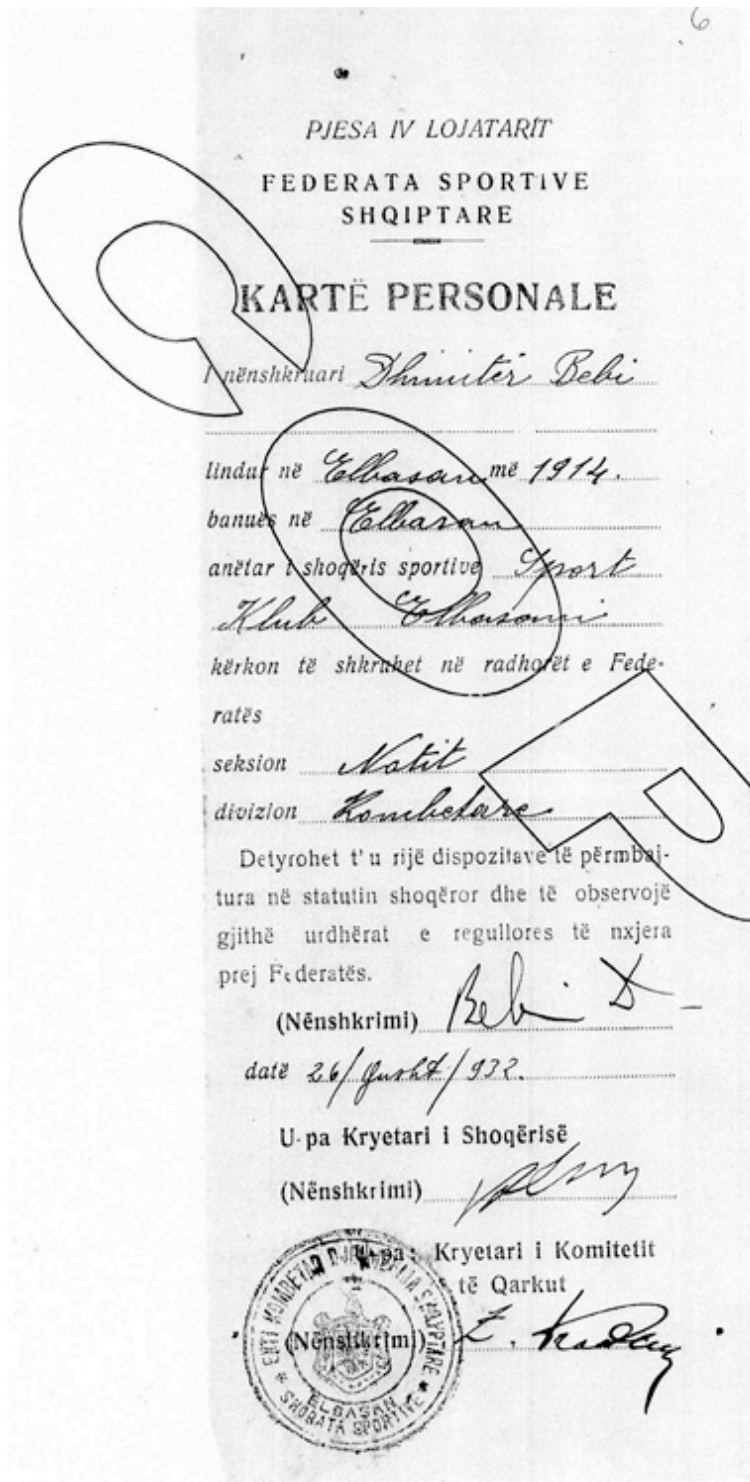 6
PJESA IV LOJATARIT
FEDERATA SPORTIVE
SHQIPTARE
KARTË PERSONALE
I nënshkruari Dhimitër Bebi
lindur në Elbasan më 1914.
banuës në Elbasan
anëtar i shoqëris sportive Sport
Klub Elbasani
kërkon të shkruhet në radhorët e Fede-
ratës
seksion Notit
divizion Kombëtare
Detyrohet t' u rijë dispozitave të përmbaj-
tura në statutin shoqëror dhe të observojë
gjithë urdhërat e regullores të nxjera
prej Federatës.
(Nënshkrimi) Bebi D
datë 26/Gusht/932.
U-pa Kryetari i Shoqërisë
(Nënshkrimi)
U-pa: Kryetari i Komitetit
të Qarkut
(Nënshkrimi) Z.
ENTI KOMBËTAR DJELMËNIJA SHQYPTARE
ELBASAN
SHORATA SPORTIVE
COP